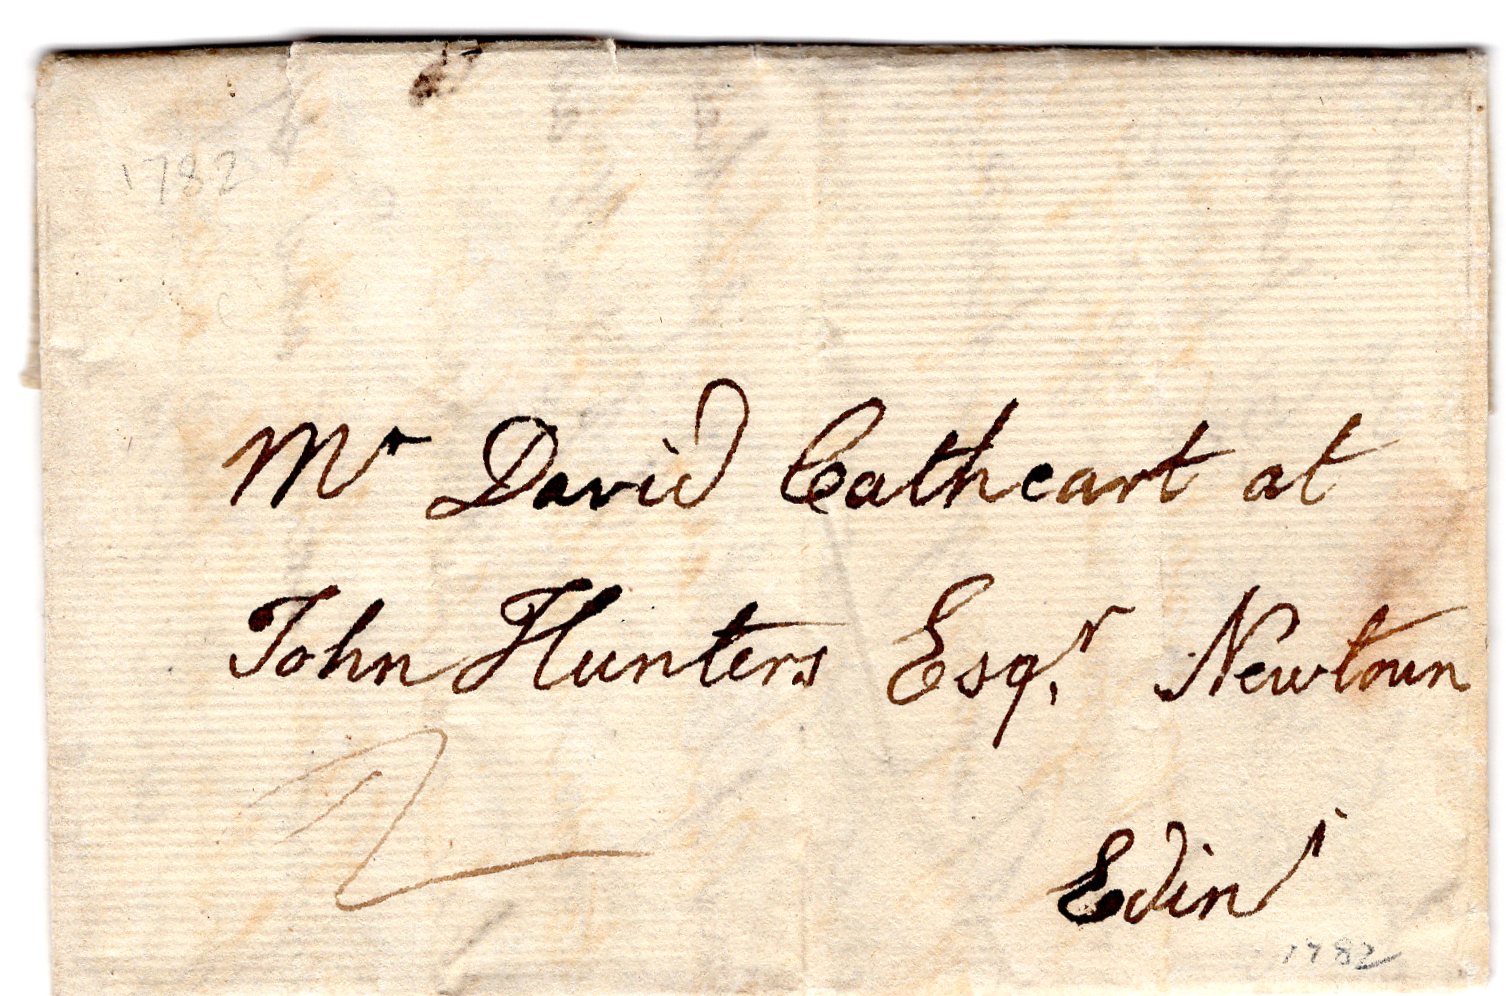 1782
Mr David Cathcart at
John Hunters Esqr. Newtoun
2
Edinr
1782